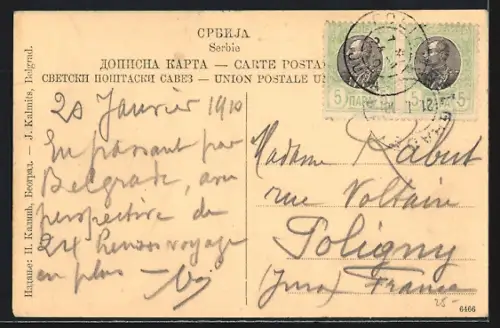 СРБИЈА
Serbie
ДОПИСНА КАРТА — CARTE POSTA
СВЕТСКИ ПОШТАНСКИ САВЕЗ — UNION POSTALE U
Издање: Н. Калмић, Београд. — J. Kalmits, Belgrad.
5 ПАРА
5
20 Janvier 1910
En passant par
Belgrade, avec
perspective de
24 heures voyage
en plus —
Madame Rabut
rue Voltaire
Poligny
(Jura) France
28-
6466